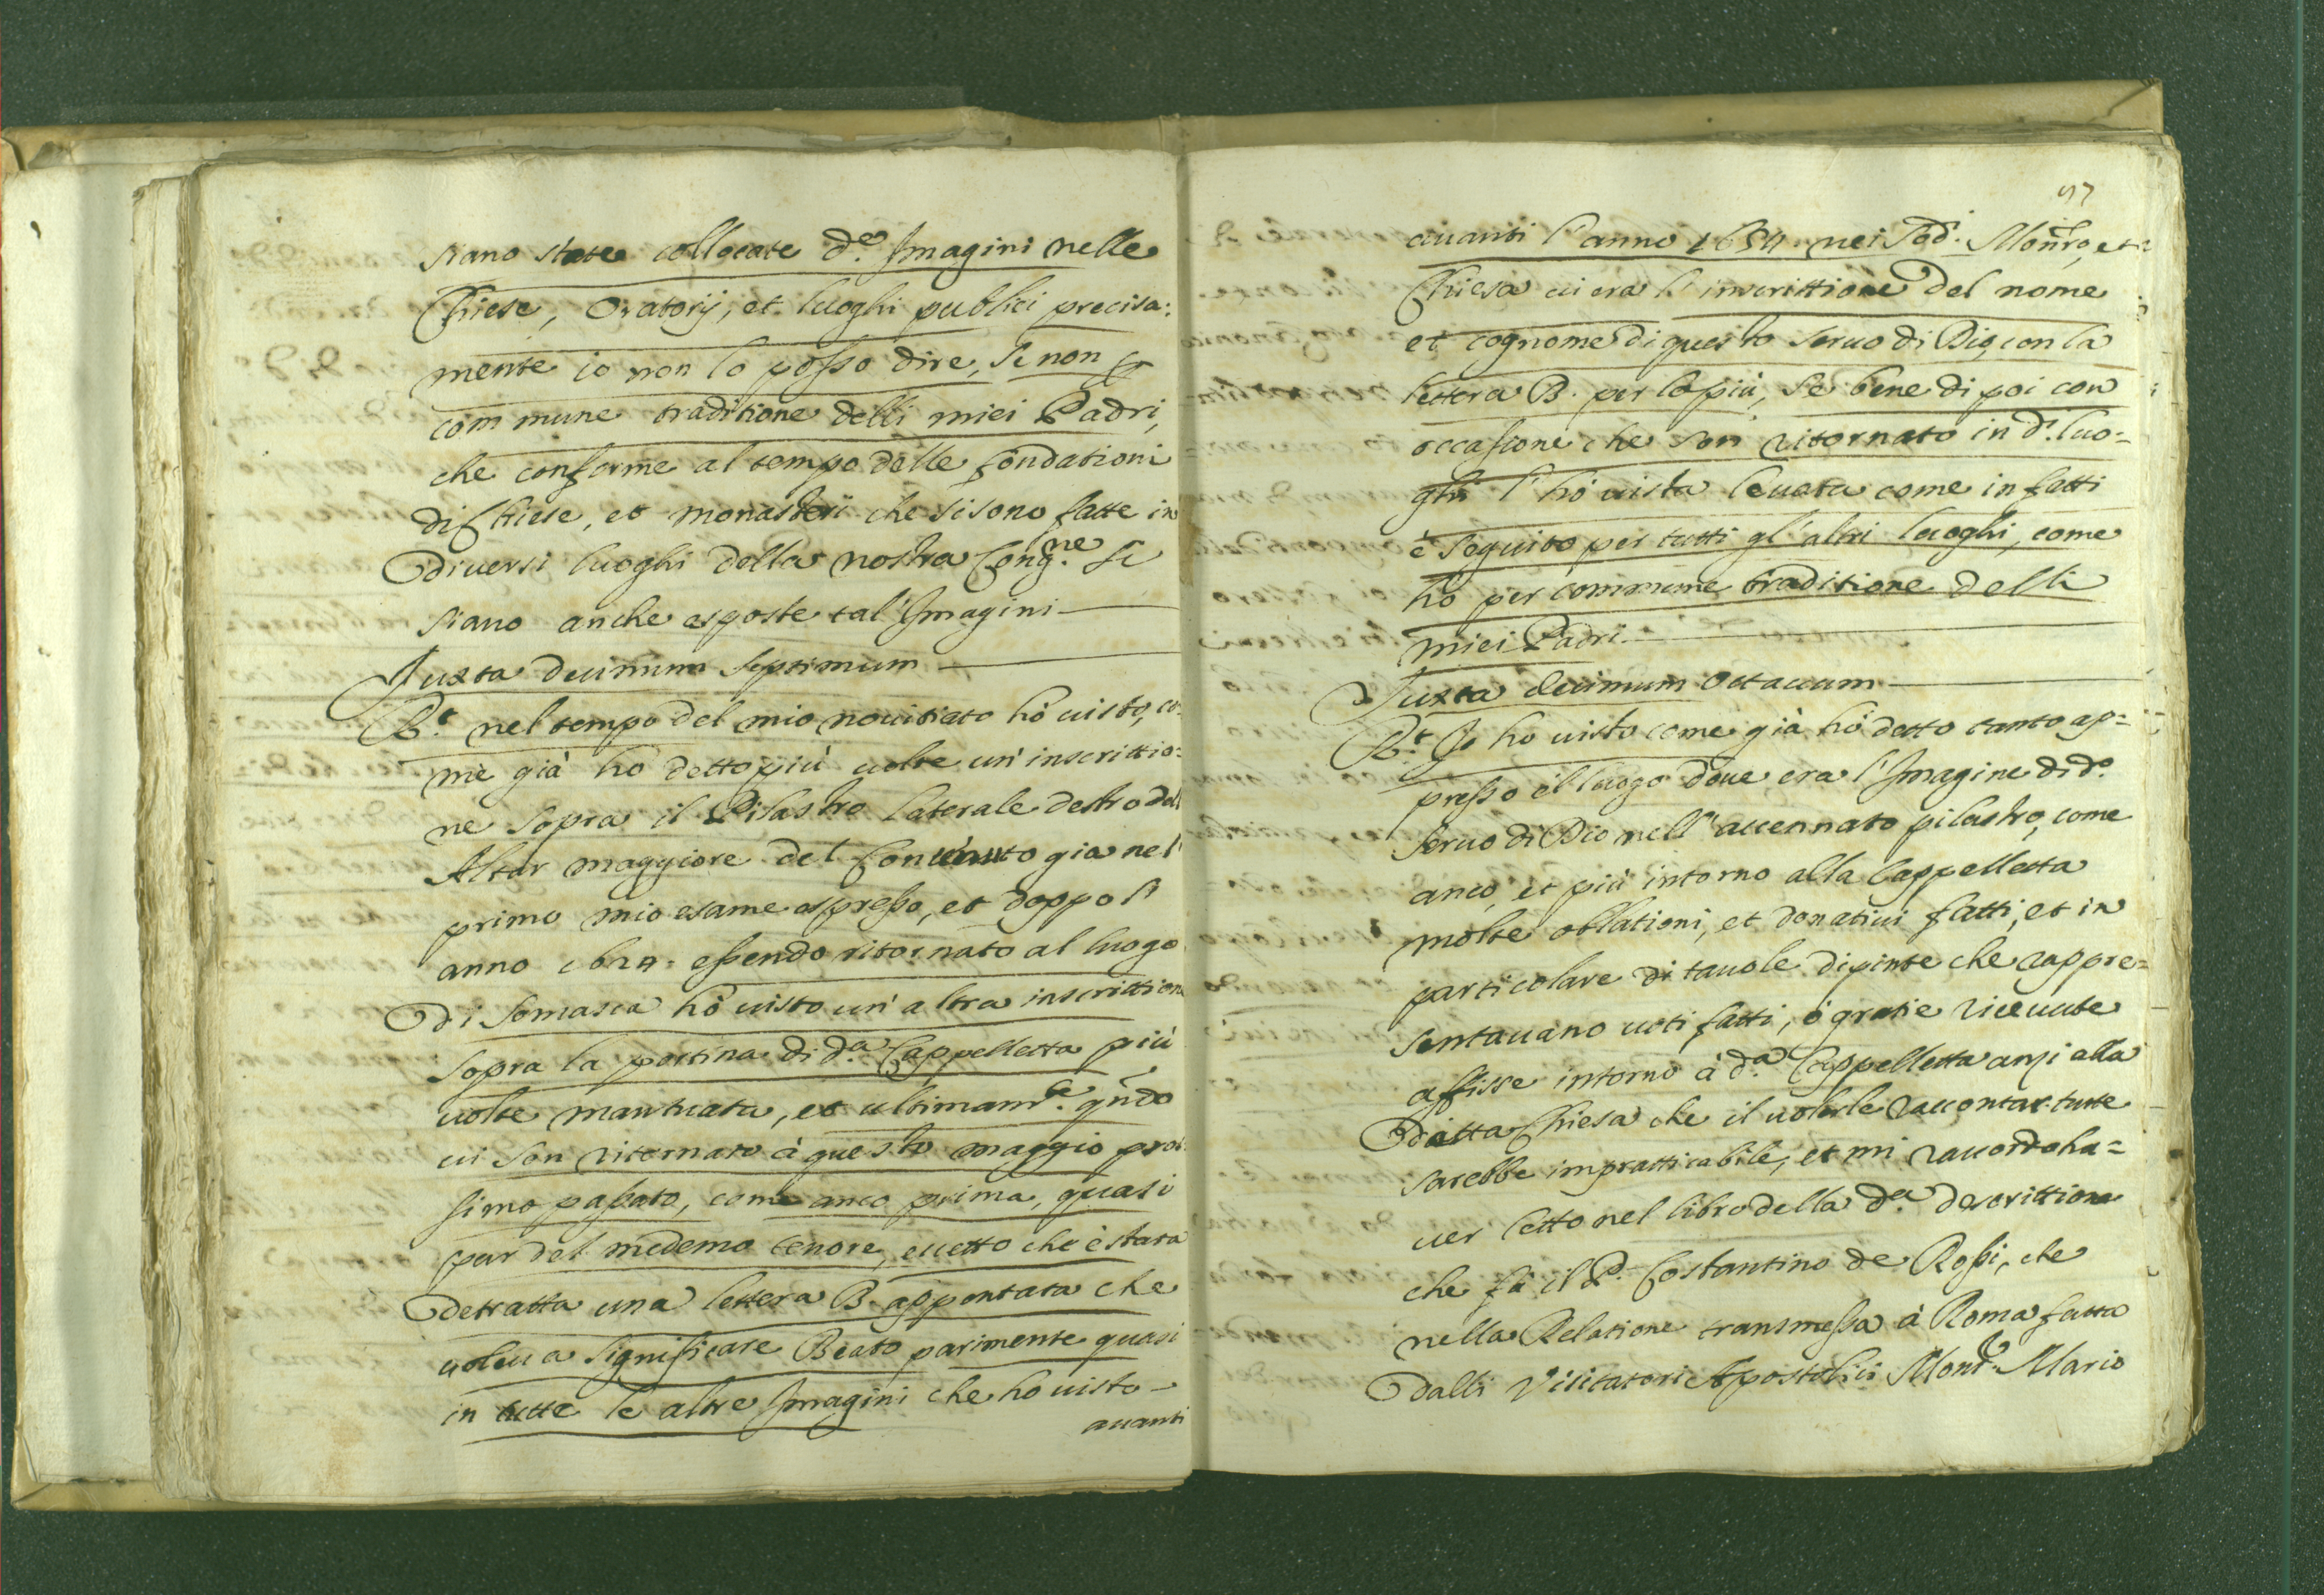 siano state collocate d.e Imagini nelle
Chiese, Oratorij, et luoghi publici precisa:
mente io non lo posso dire, se non p
commune traditione delli miei Padri,
che conforme al tempo delle fondationi
di Chiese, et monasteri che si sono fatte in
diversi luoghi della nostra Cong.ne si
siano anche esposte tal' Imagini
Juxta decimum septimum
R.t nel tempo del mio novitiato hò visto, co-
me già hò detto più volte un' inscrittio:
ne sopra il Pilastro laterale destro dell'
Altar maggiore del Contenuto gia nel
primo mio esame espresso, et doppo li
anno 1624. essendo ritornato al luogo
di Somasca hò visto un' altra inscrittione
sopra la portina di d.a Cappelletta più
volte mantuata, et ultimam.te qndo
vi son ritornato à questo maggio pros-
simo passato, come anco prima, quasi
pur del medemo tenore, eccetto che è stata
detratta una lettera B. appontata che
voleva significare Beato parimente quasi
in tutte le altre Imagini che ho visto
avanti
97
avanti l'anno 1634. nei Sod.i Mon.ro, et
Chiesa vi era l' inscrittione del nome
et cognome di questo servo di Dio, con la
lettera B. per lo più, se bene di poi con
occasione che son ritornato in d.i luo-
ghi l' hò vista levata come in fatti
è seguito per tutti gl' altri luoghi, come
hò per commune traditione delli
miei Padri
Juxta decimum octavum
R.t Io ho visto come già hò detto tanto ap-
presso il luogo dove era l' Imagine di d.o
servo di Dio nell' accennato pilastro, come
anco, et più intorno alla Cappelletta
molte oblationi, et donativi fatti, et in
particolare di tavole dipinte che rappre-
sentavano voti fatti, ò gratie ricevute
affisse intorno à d.a Cappelletta anzi alla
detta Chiesa che il volerle raccontar tutte
sarebbe impratticabile, et mi raccordo ha-
ver letto nel libro della d.a descrittione
che fa il P. Costantino de Rossi, che
nella Relatione transmessa à Roma fatta
dalli Visitatori Apostolici Mons.r Mario